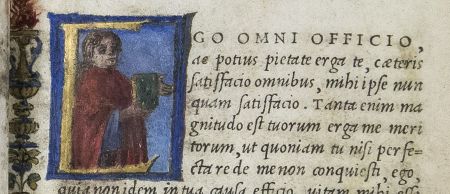 EGO OMNI OFFICIO,
ac potius pietate erga te, cæteris
satisfacio omnibus, mihi ipse nun
quam satisfacio. Tanta enim ma
gnitudo est tuorum erga me meri
torum, ut quoniam tu nisi perfe-
cta re de me non conquiesti, ego,
quia non idem in tua causa efficio, vitam mihi esse